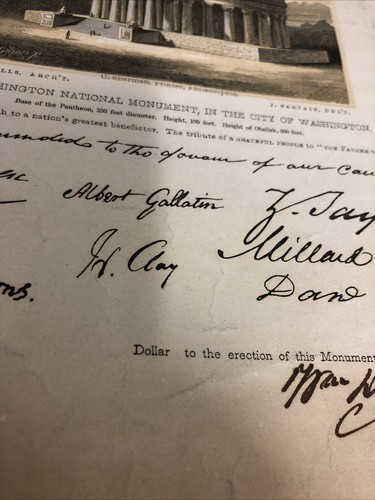 LLS, ARCH'T.
J. SARTAIN, DEL'T.
HINGTON NATIONAL MONUMENT, IN THE CITY OF WASHINGTON.
Base of the Pantheon, 250 feet diameter. Height, 100 feet. Height of Obelisk, 500 feet.
sh to a nation's greatest benefactor. The tribute of a GRATEFUL PEOPLE to "THE FATHER O
to the favour of our
Albert Gallatin
Z. Tay
H. Clay
Millard
Dan
Dollar to the erection of this Monument
Wm